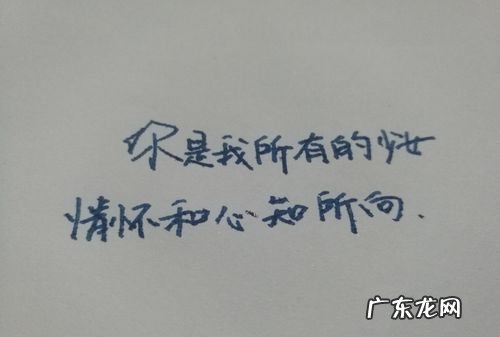 你是我所有的少女
情怀和心知所向.
广东龙网